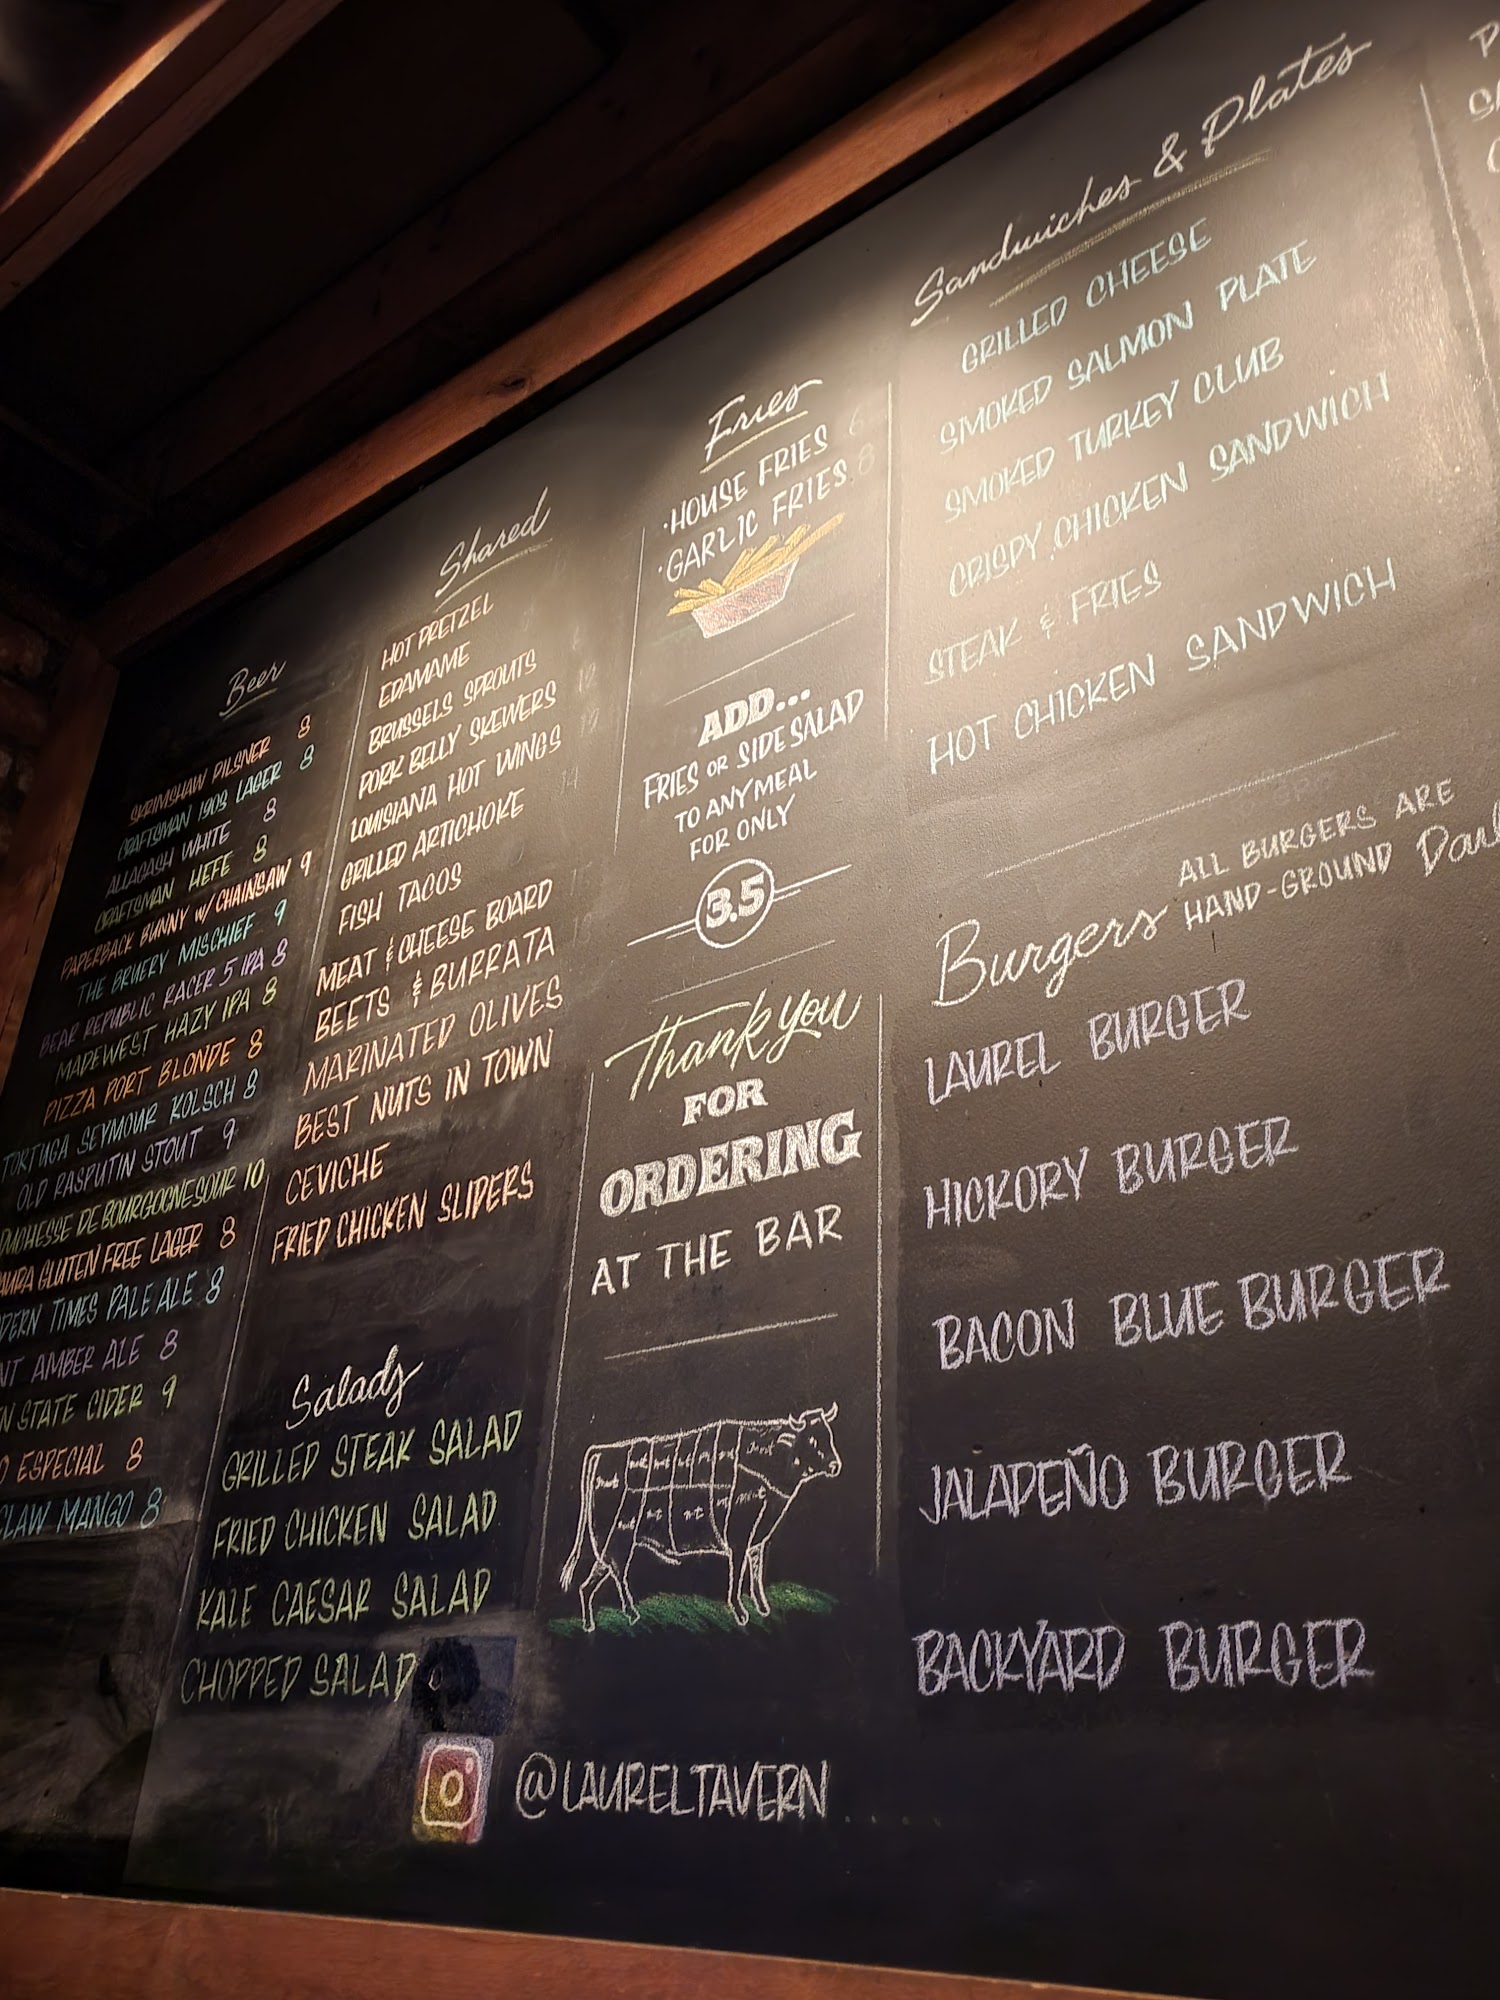 Beer
SKRIMSHAW PILSNER 8
CRAFTSMAN 1903 LAGER 8
ALLAGASH WHITE 8
CRAFTSMAN HEFE 8
PAPERBACK BUNNY W/ CHAINSAW 9
THE BRUERY MISCHIEF 9
BEAR REPUBLIC RACER 5 IPA 8
MADEWEST HAZY IPA 8
PIZZA PORT BLONDE 8
TORTUGA SEYMOUR KOLSCH 8
OLD RASPUTIN STOUT 9
DUCHESSE DE BOURGOGNE SOUR 10
GLUTEN FREE LAGER 8
DERN TIMES PALE ALE 8
NT AMBER ALE 8
N STATE CIDER 9
O ESPECIAL 8
CLAW MANGO 8
Shared
HOT PRETZEL
EDAMAME
BRUSSELS SPROUTS
PORK BELLY SKEWERS
LOUISIANA HOT WINGS
GRILLED ARTICHOKE
FISH TACOS
MEAT & CHEESE BOARD
BEETS & BURRATA
MARINATED OLIVES
BEST NUTS IN TOWN
CEVICHE
FRIED CHICKEN SLIDERS
Salads
GRILLED STEAK SALAD
FRIED CHICKEN SALAD
KALE CAESAR SALAD
CHOPPED SALAD
@LAURELTAVERN
Fries
·HOUSE FRIES 6
·GARLIC FRIES 8
ADD...
FRIES OR SIDE SALAD
TO ANY MEAL
FOR ONLY
3.5
Thank you
FOR
ORDERING
AT THE BAR
Sandwiches & Plates
GRILLED CHEESE
SMOKED SALMON PLATE
SMOKED TURKEY CLUB
CRISPY CHICKEN SANDWICH
STEAK & FRIES
HOT CHICKEN SANDWICH
ALL BURGERS ARE
Burgers HAND-GROUND
LAUREL BURGER
HICKORY BURGER
BACON BLUE BURGER
JALAPEÑO BURGER
BACKYARD BURGER